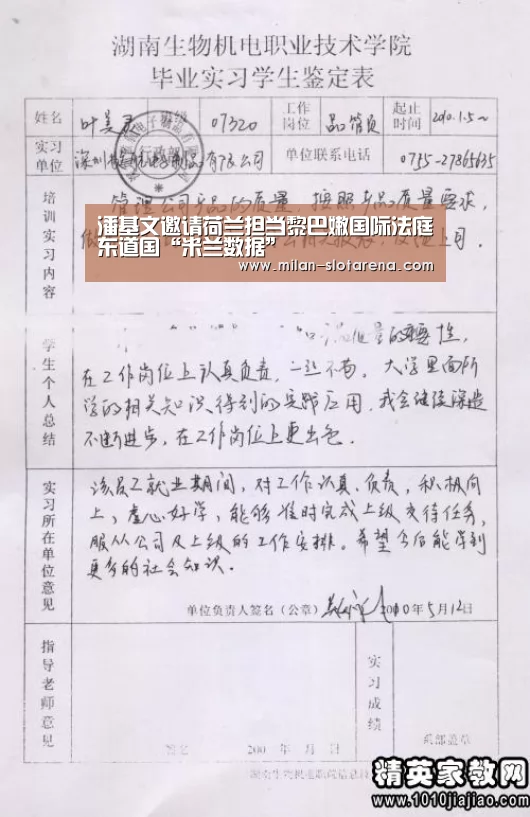 湖南生物机电职业技术学院
毕业实习学生鉴定表
姓名 叶美君 07320 工作岗位 品管员 起止时间 2010.1.5~
实习单位 有限公司 单位联系电话 0755-27865635
行政部
培训实习内容
管理公司产品的质量,按照产品质量要求,
潘基文邀请荷兰担当黎巴嫩国际法庭
东道国“米兰数据”
www.milan-slotarena.com
学生个人总结
的重要性,
在工作岗位上认真负责,一丝不苟。大学里面所
学的相关知识得到的实践应用。我会继续深造
不断进步,在工作岗位上更出色。
实习所在单位意见
该员工就业期间,对工作认真、负责,积极向
上,虚心好学,能够准时完成上级交待任务,
服从公司及上级的工作安排。希望今后能学到
更多的社会知识。
单位负责人签名(公章) 2010年5月12日
指导老师意见
实习成绩
签名 200 年 月 日
系部盖章
精英家教网
www.1010jiajiao.com